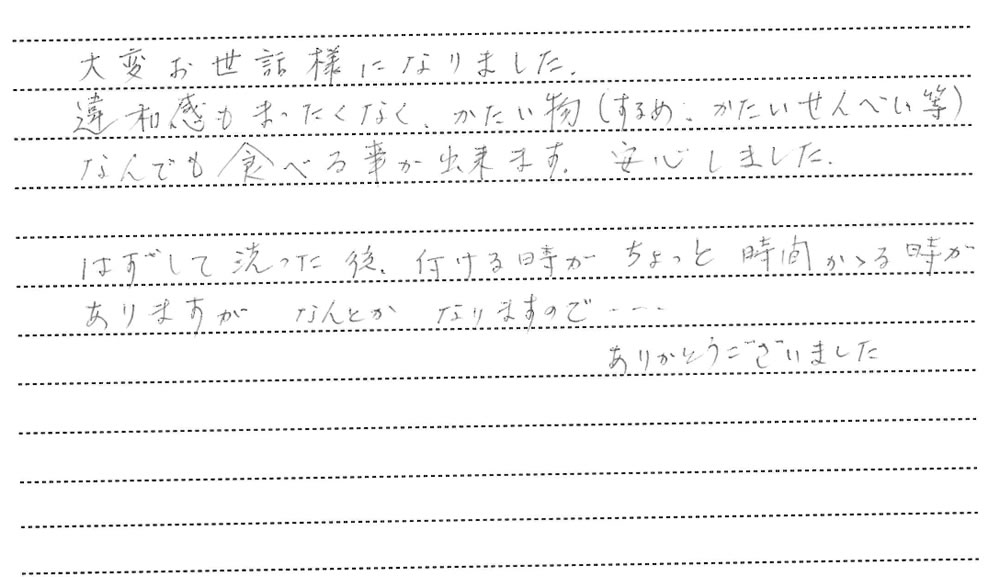 大変お世話様になりました。
違和感もまったくなく、かたい物(するめ、かたいせんべい等)
なんでも食べる事が出来ます。安心しました。
はずして洗った後、付ける時がちょっと時間かゝる時が
ありますが なんとか なりますので・・・
ありがとうございました